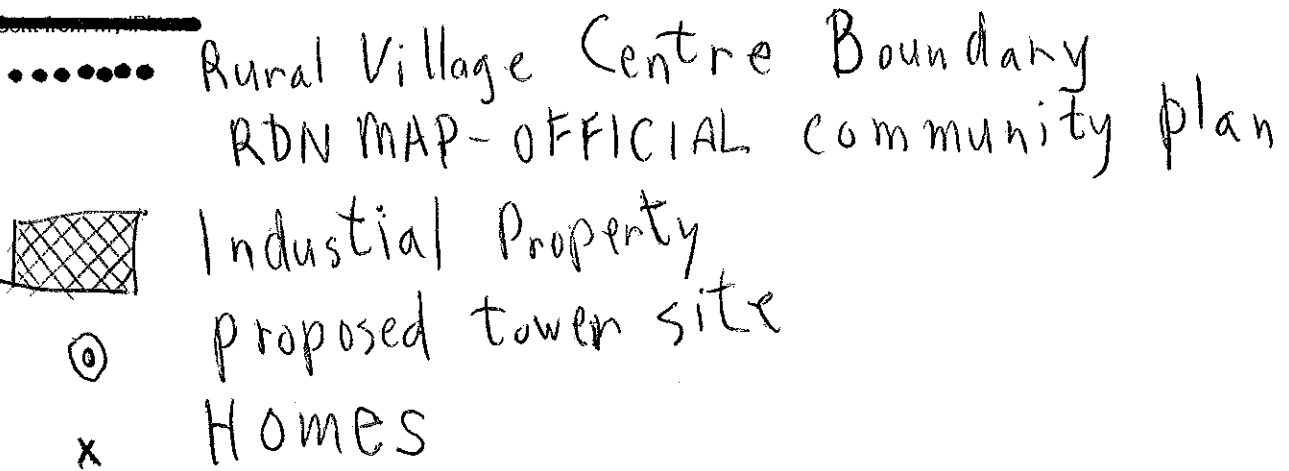 Rural Village Centre Boundary
RDN MAP- OFFICIAL community plan
Industial Property
proposed tower site
x Homes